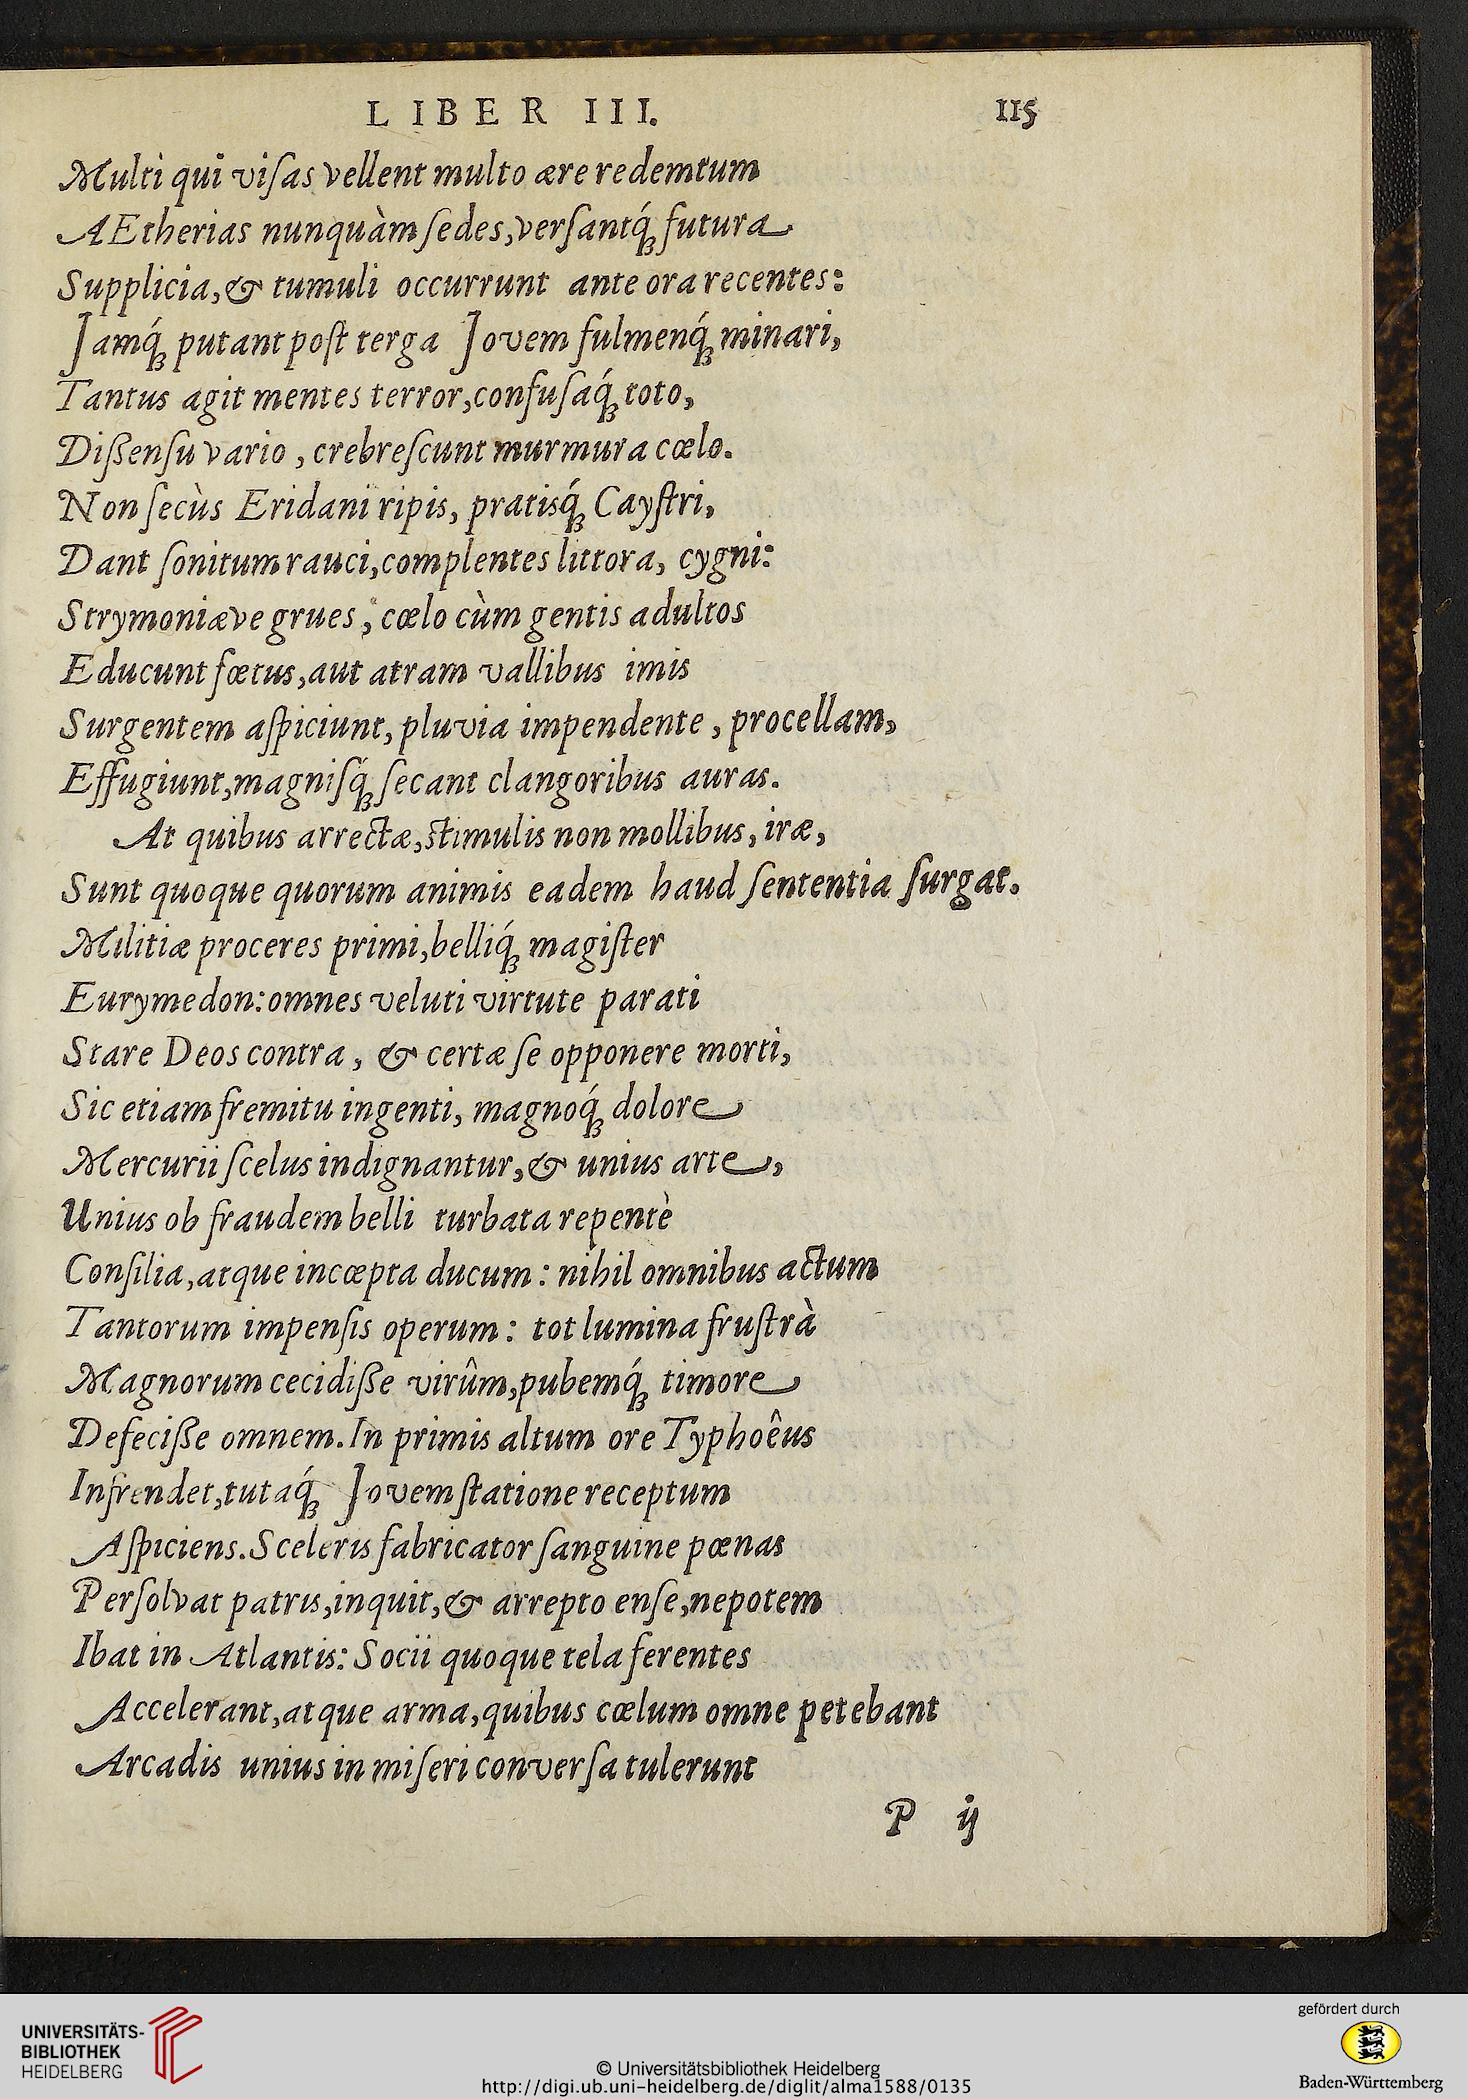 LIBER III. 115
Multi qui viſas vellent multo ære redemtum
AEtherias nunquàm ſedes, verſantq́ꝫ futura
Supplicia, & tumuli occurrunt ante ora recentes:
Jamq́ꝫ putant poſt terga Jovem fulmenq́ꝫ minari,
Tantus agit mentes terror, confuſaq́ꝫ toto,
Diſſenſu vario, crebreſcunt murmura cœlo.
Non ſecùs Eridani ripis, pratisq́ꝫ Cayſtri,
Dant ſonitum rauci, complentes littora, cygni:
Strymoniæve grues, cœlo cùm gentis adultos
Educunt fœtus, aut atram vallibus imis
Surgentem aſpiciunt, pluvia impendente, procellam,
Effugiunt, magniſq́ꝫ ſecant clangoribus auras.
At quibus arrectæ, ſtimulis non mollibus, iræ,
Sunt quoque quorum animis eadem haud ſententia ſurgat.
Militiæ proceres primi, belliq́ꝫ magiſter
Eurymedon: omnes veluti virtute parati
Stare Deos contra, & certæ ſe opponere morti,
Sic etiam fremitu ingenti, magnoq́ꝫ dolore
Mercurii ſcelus indignantur, & unius arte,
Unius ob fraudem belli turbata repentè
Conſilia, atque incœpta ducum: nihil omnibus actum
Tantorum impenſis operum: tot lumina fruſtrà
Magnorum cecidiſſe virûm, pubemq́ꝫ timore
Defeciſſe omnem. In primis altum ore Typhoêus
Infrendet, tutaq́ꝫ Jovem ſtatione receptum
Aſpiciens. Sceleris fabricator ſanguine pœnas
Perſolvat patris, inquit, & arrepto enſe, nepotem
Ibat in Atlantis: Socii quoque tela ferentes
Accelerant, atque arma, quibus cœlum omne petebant
Arcadis unius in miſeri converſa tulerunt
P ij
UNIVERSITÄTS-
BIBLIOTHEK
HEIDELBERG
© Universitätsbibliothek Heidelberg
http://digi.ub.uni-heidelberg.de/diglit/alma1588/0135
gefördert durch
Baden-Württemberg